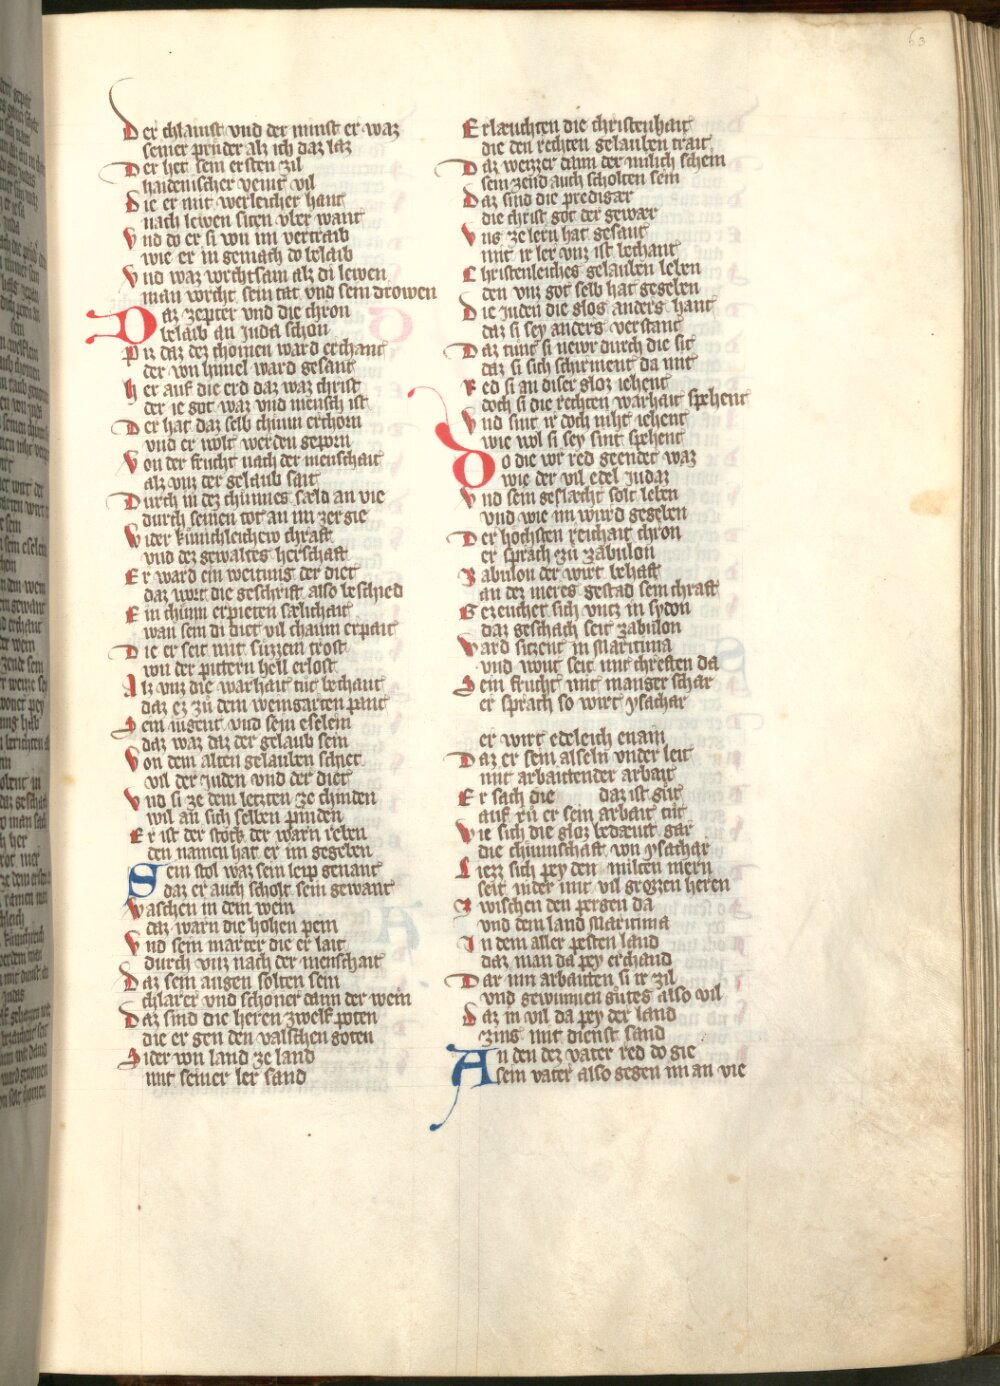 63
Der chlainst vnd der minst er waz
seiner prüder alz ich daz laz
Der het sein ersten zil
haidenischer veint vil
Die er mit werleicher hant
nach lewen siten vber want
Vnd do er si von im vertraib
wie er in gemach do belaib
Vnd waz vorchtsam alz di lewen
man vorcht sein tat vnd sein drowen
Daz zepter vnd die chron
belaib an Juda schon
Piz daz dez chomen ward erchant
der von himel ward gesant
Her auf die erd daz waz christ
der ie got waz vnd mensch ist
Der hat daz selb chünn erchorn
vnd er wolt werden geporn
Von der frucht nach der menschait
alz vnz der gelaub sait
Durch in dez chünnes sæld an vie
durch seinen tot an im zergie
Wider künichleichew chraft
vnd dez gewaltes herschaft
Er ward ein weitung der diet
daz wort die geschrift also beschied
Ein chünn erpieten sælichait
wan sein di diet vil chaum erpait
Die er seit mit süzzem trost
von der pittern hell erlost
Alz vnz die warhait tüt bechant
daz ez zü dem weingarten pant
Sein iugent vnd sein eselein
daz waz daz der gelaub sein
Von dem alten gelauben schiet
vil der Juden vnd der diet
Vnd si ze dem letzten ze chinden
wil an sich selben pinden
Er ist der stock der warn reben
den namen hat er im gegeben
Sein stol waz sein leip genant
daz er auch scholt sein gewant
Waschen in dem wein
daz warn die hohen pein
Vnd sein marter die er lait
durch vnz nach der menschait
Daz sein augen solten sein
chlarer vnd schoner dann der wein
Daz sind die heren zwelf poten
die er gen den valschen goten
Sider von land ze land
mit seiner ler sand
Erlæuchten die christenhait
die den rechten gelauben trait
Daz weizzer dann der milich schein
sein zend auch scholten sein
Daz sind die predigær
die christ got der gewær
Vns ze lern hat gesant
mit ir ler vnz ist bechant
Christenleiches gelauben leben
den vnz got selb hat gegeben
Die Juden die glos anders hant
daz si sey anders verstant
Daz tünt si newr durch die sit
daz si sich schirment da mit
Red si an diser gloz iehent
doch si die rechten warhait spehent
Vnd sint ir doch niht iehent
wie wol si sey sint spehent
Do die wr red geendet waz
wie der vil edel Judas
Vnd sein geslæcht solt leben
vnd wie im wurd gegeben
Der hochsten reichait chron
er sprach zü zabulon
Zabulon der wirt behaft
an dez meres gestad sein chraft
Gezeuchet sich vntz in sydon
daz geschach seit zabulon
Ward sitzent in Maritima
vnd wont seit mit chreften da
Sein frucht mit maniger schar
er sprach so wirt ysachar
er wirt edeleich enain
Daz er sein alseln vnder leit
mit arbaittender arbait
Er sach die daz ist güt
auf rü er sein arbait tüt
Wie sich die gloz bedæut gar
die chünnschaft von ysachar
Liezz sich pey den milten mern
seit nider mit vil grozzen heren
Zwischen den pergen da
vnd dem land Maritima
In dem aller pesten land
daz man da pey erchand
Dar inn arbaiten si ir zil
vnd gewunnen gutes also vil
Daz in vil da pey der land
zins mit dienst sand
An den dez vater red do gie
sein vater also gegen im an vie